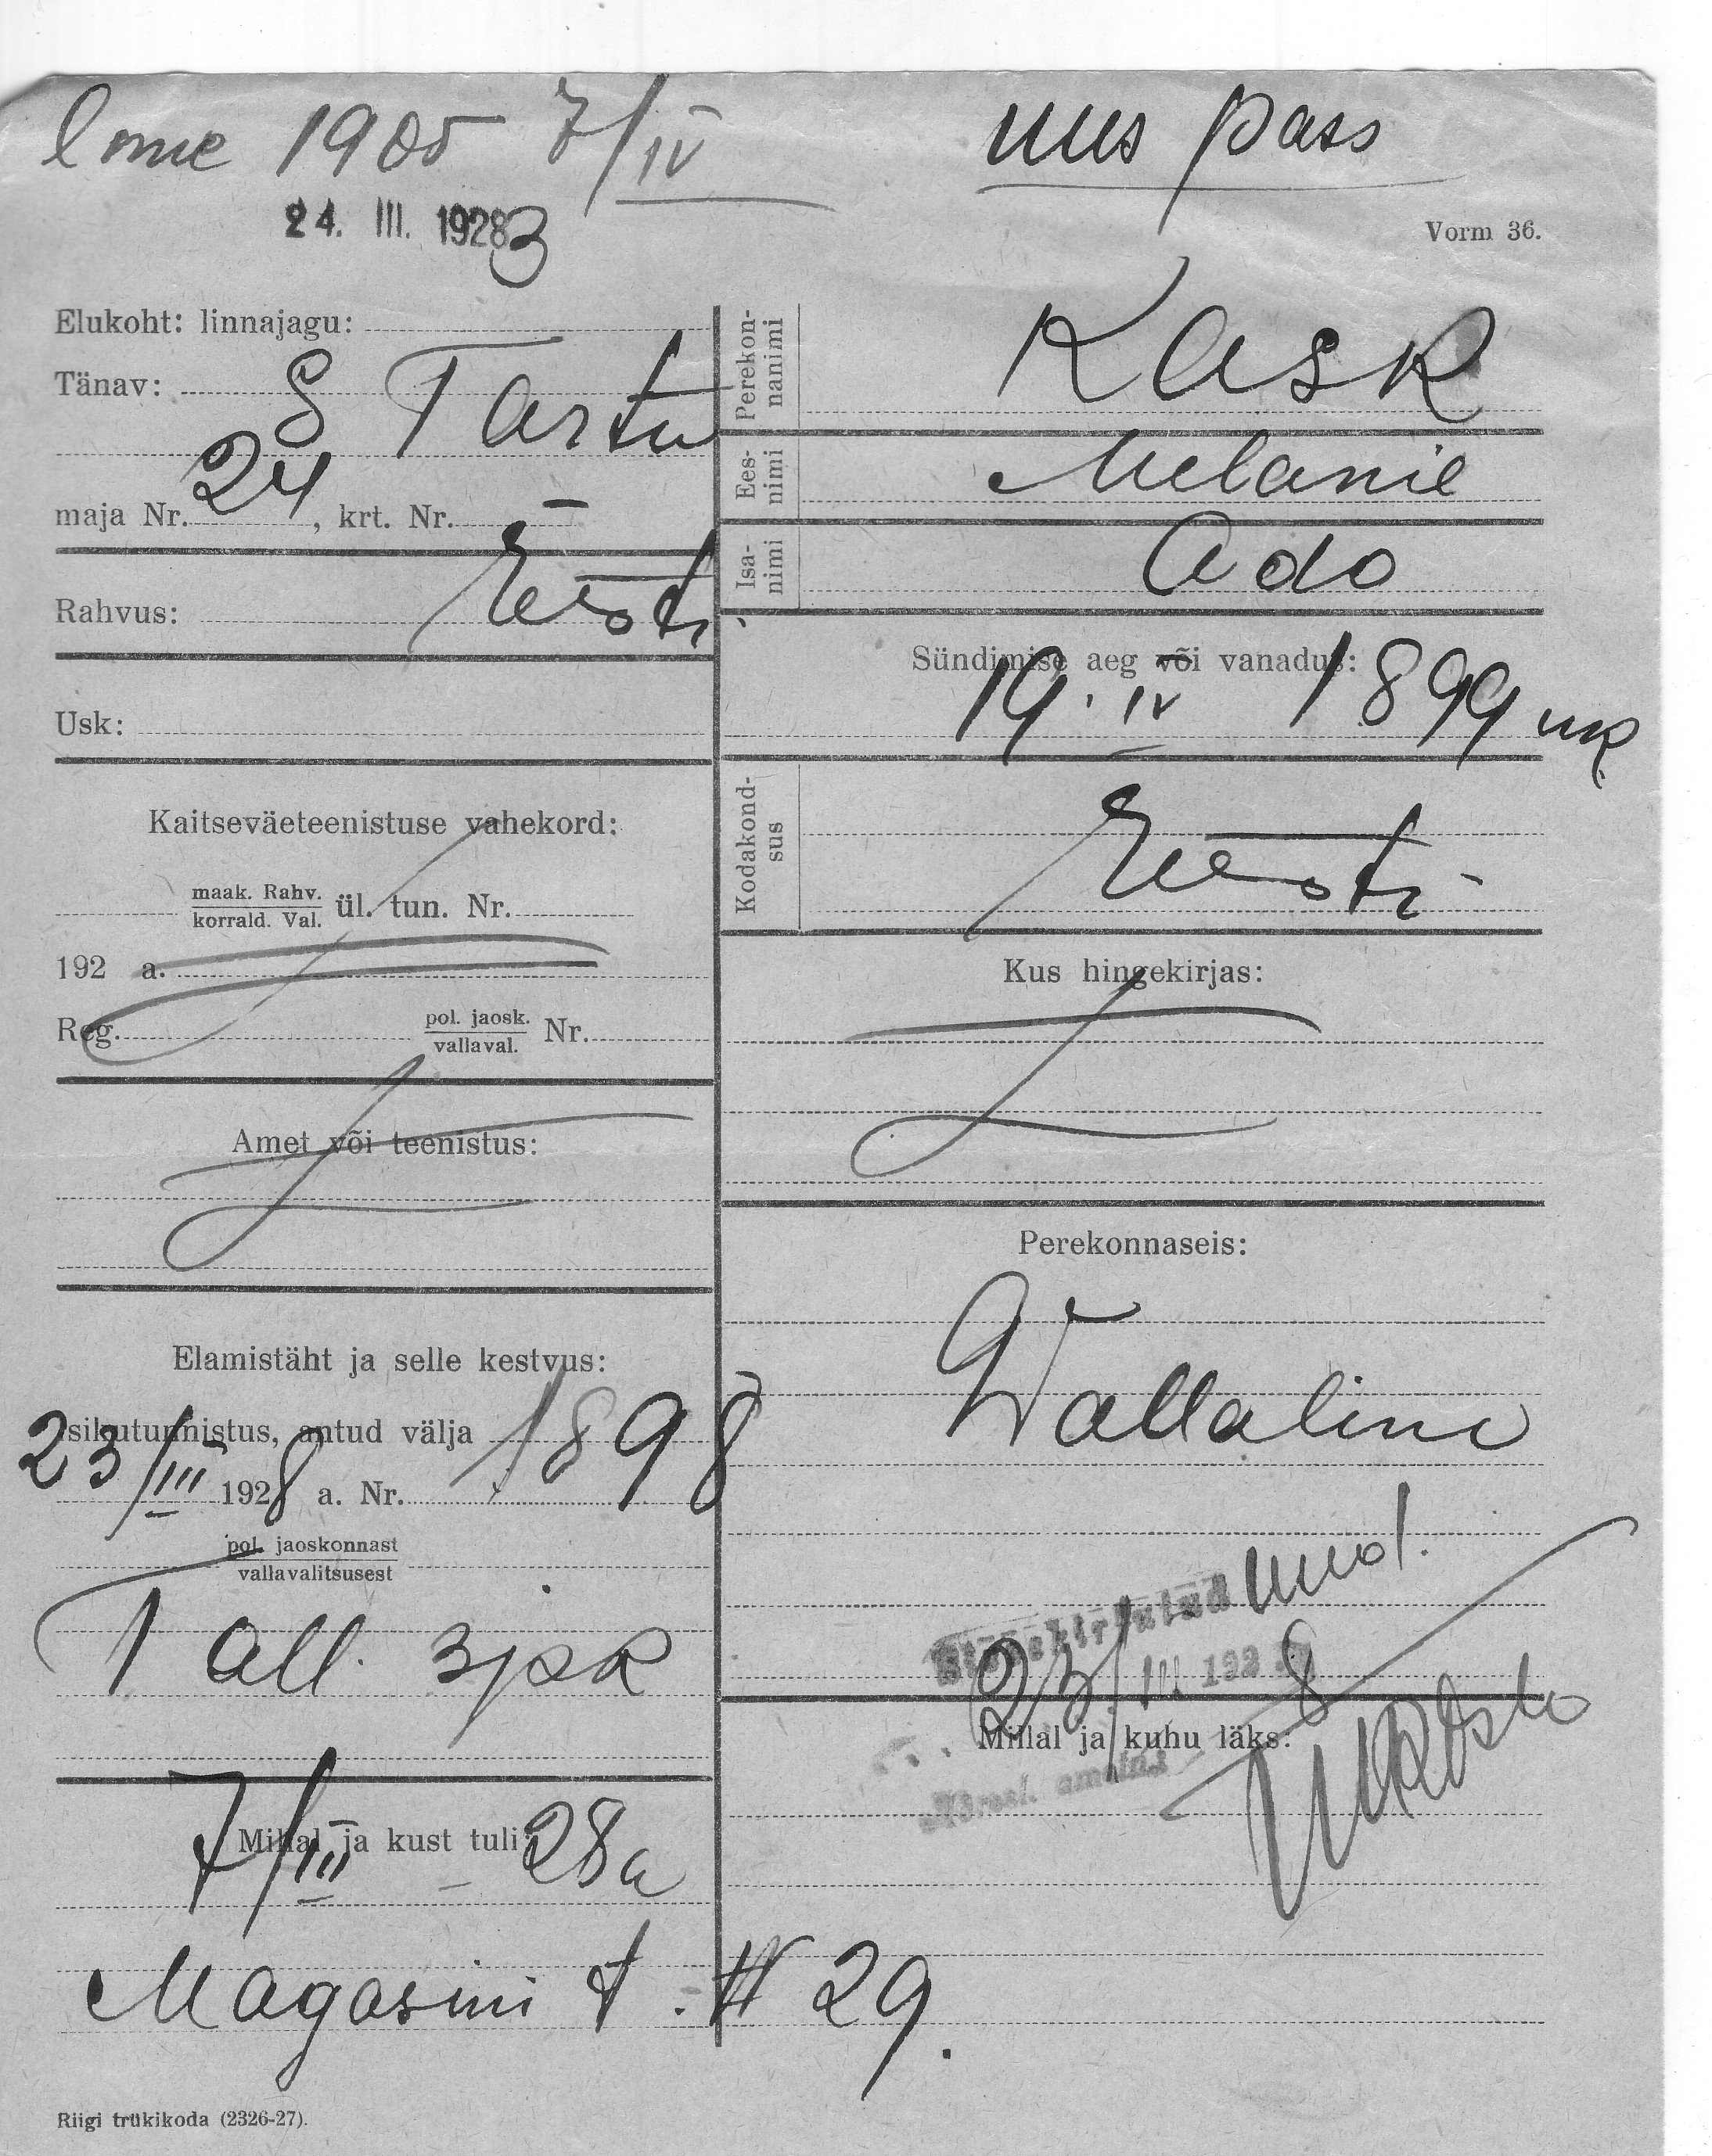 1905 7/IV
uus pass
24. III. 1928 3
Vorm 36.
Elukoht: linnajagu:
Tänav: S Tartu
maja Nr. 24, krt. Nr. —
Rahvus: Eesti
Usk:
Kaitseväeteenistuse vahekord:
maak. Rahv.
korrald. Val. ül. tun. Nr.
192 a.
Reg. pol. jaosk.
vallaval. Nr.
Amet või teenistus:
Elamistäht ja selle kestvus:
Isikutunnistus, antud välja
23/III 1928 a. Nr. 1898
pol. jaoskonnast
vallavalitsusest
Tall. 3 jsk
Millal ja kust tuli:
7/III – 28 a
Magasini t. # 29.
Riigi trükikoda (2326-27).
Perekon-
nanimi
Kask
Ees-
nimi
Melanie
Isa-
nimi
Ado
Sündimise aeg või vanadus:
19. IV 1899
Kodakond-
sus
Eesti
Kus hingekirjas:
Perekonnaseis:
Wallaline
23/III 192 8
Millal ja kuhu läks: